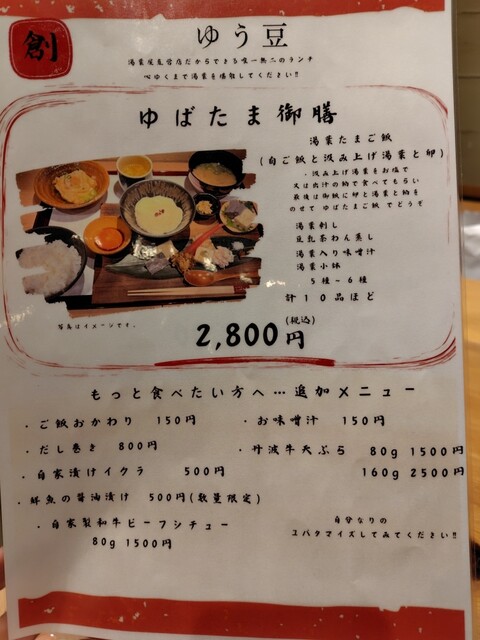 創
ゆう豆
湯葉屋直営店だからできる唯一無二のランチ
心ゆくまで湯葉を堪能してください!!
ゆばたま御膳
湯葉たまご飯
(白ご飯と汲み上げ湯葉と卵)
・汲み上げ湯葉をお塩で
又は出汁の餡で食べてもらい
最後は御飯に卵と湯葉と餡を
のせて ゆばたまご飯 でどうぞ
湯葉刺し
豆乳茶わん蒸し
湯葉入り味噌汁
湯葉小鉢
5種~6種
計10品ほど
写真はイメージです。
2,800円
(税込)
もっと食べたい方へ…追加メニュー
・ご飯おかわり 150円
・お味噌汁 150円
・だし巻き 800円
・丹波牛天ぷら 80g 1500円
160g 2500円
・自家漬けイクラ 500円
・鮮魚の醤油漬け 500円(数量限定)
・自家製和牛ビーフシチュー
80g 1500円
自分なりの
ユバタマイズしてみてください!!